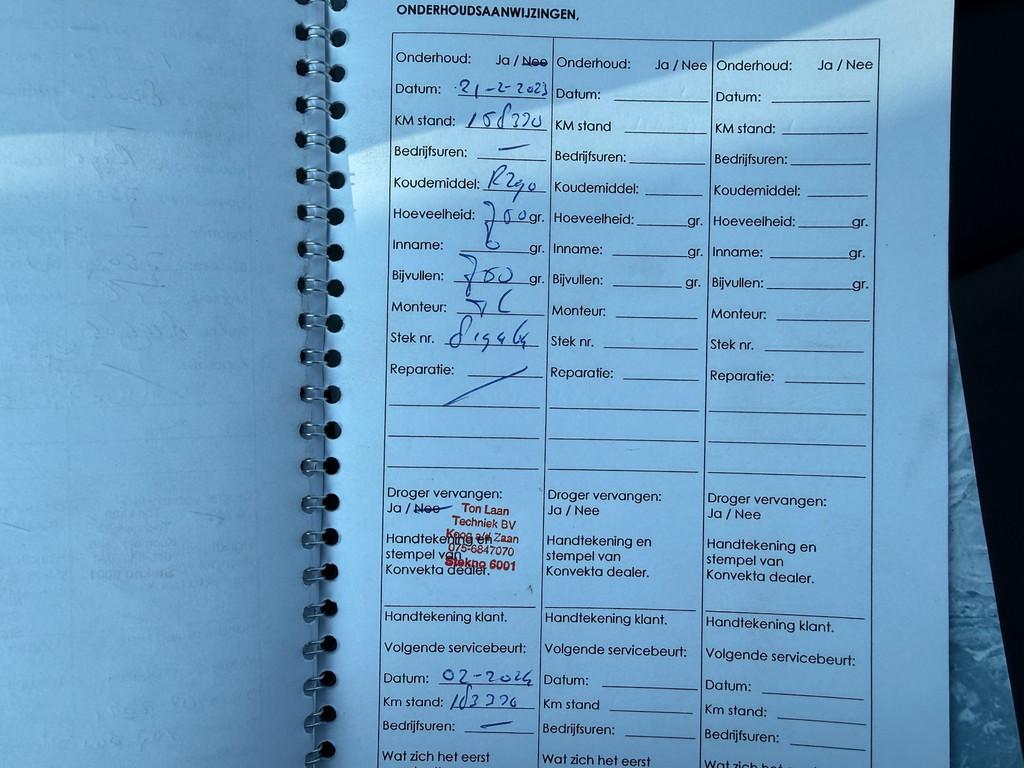 ONDERHOUDSAANWIJZINGEN,
Onderhoud: Ja / Nee
Datum: 21-2-2023
KM stand: 158370
Bedrijfsuren: —
Koudemiddel:
Hoeveelheid: 700 gr.
Inname: gr.
Bijvullen: 700 gr.
Monteur:
Stek nr.
Reparatie:
Droger vervangen:
Ja / Nee
Ton Laan
Techniek BV
Koog a/d Zaan
075-6847070
Stekno 6001
Handtekening en
stempel van
Konvekta dealer.
Handtekening klant.
Volgende servicebeurt:
Datum: 02-2024
Km stand:
Bedrijfsuren: —
Wat zich het eerst
Onderhoud: Ja / Nee
Datum:
KM stand
Bedrijfsuren:
Koudemiddel:
Hoeveelheid: gr.
Inname: gr.
Bijvullen: gr.
Monteur:
Stek nr.
Reparatie:
Droger vervangen:
Ja / Nee
Handtekening en
stempel van
Konvekta dealer.
Handtekening klant.
Volgende servicebeurt:
Datum:
Km stand
Bedrijfsuren:
Wat zich het eerst
Onderhoud: Ja / Nee
Datum:
KM stand:
Bedrijfsuren:
Koudemiddel:
Hoeveelheid: gr.
Inname: gr.
Bijvullen: gr.
Monteur:
Stek nr.
Reparatie:
Droger vervangen:
Ja / Nee
Handtekening en
stempel van
Konvekta dealer.
Handtekening klant.
Volgende servicebeurt:
Datum:
Km stand:
Bedrijfsuren: